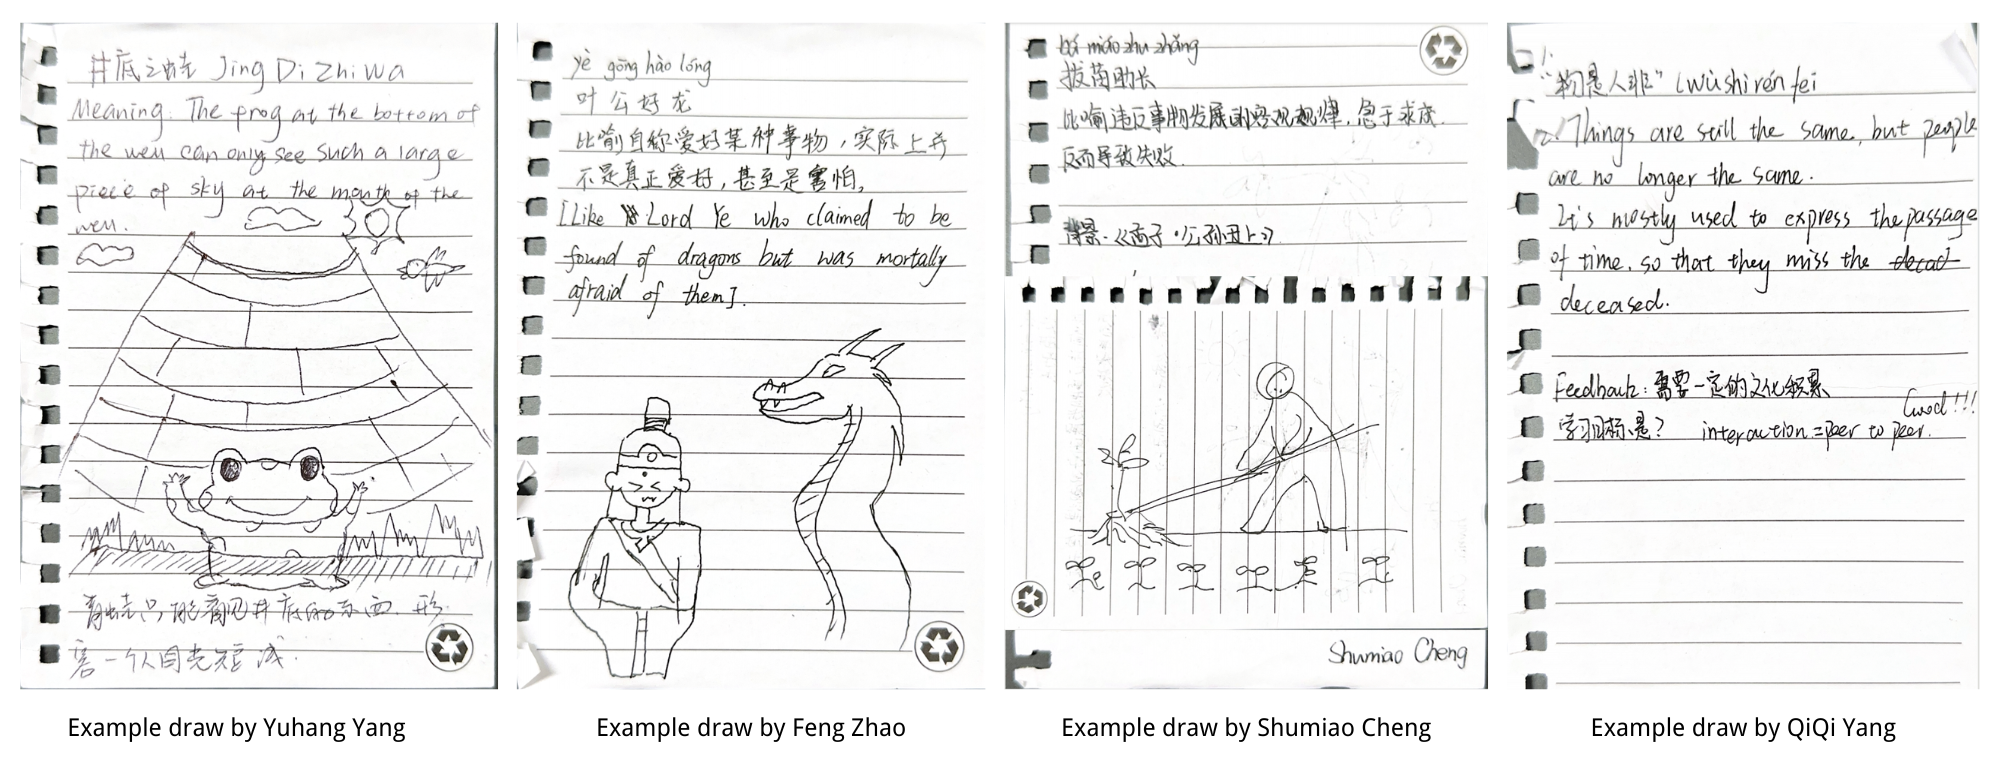 井底之蛙 Jing Di Zhi Wa
Meaning: The frog at the bottom of
the well can only see such a large
piece of sky at the mouth of the
well.
青蛙只能看见井底的东西. 形
容一个人目光短浅.
Example draw by Yuhang Yang
yè gōng hào lóng
叶公好龙
比喻自称爱好某种事物，实际上并
不是真正爱好，甚至是害怕。
[Like Lord Ye who claimed to be
found of dragons but was mortally
afraid of them].
Example draw by Feng Zhao
bá miáo zhu zhǎng
拔苗助长
比喻违反事物发展的客观规律，急于求成.
反而导致失败.
背景.《孟子·公孙丑上》
Shumiao Cheng
Example draw by Shumiao Cheng
1.
“物是人非” (wù shì rén fēi
2. Things are still the same, but people
are no longer the same.
It's mostly used to express the passage
of time, so that they miss the decad
deceased.
Feedback: 需要一定的文化积累
Good!!!
学习目标是? interaction = peer to peer.
Example draw by QiQi Yang